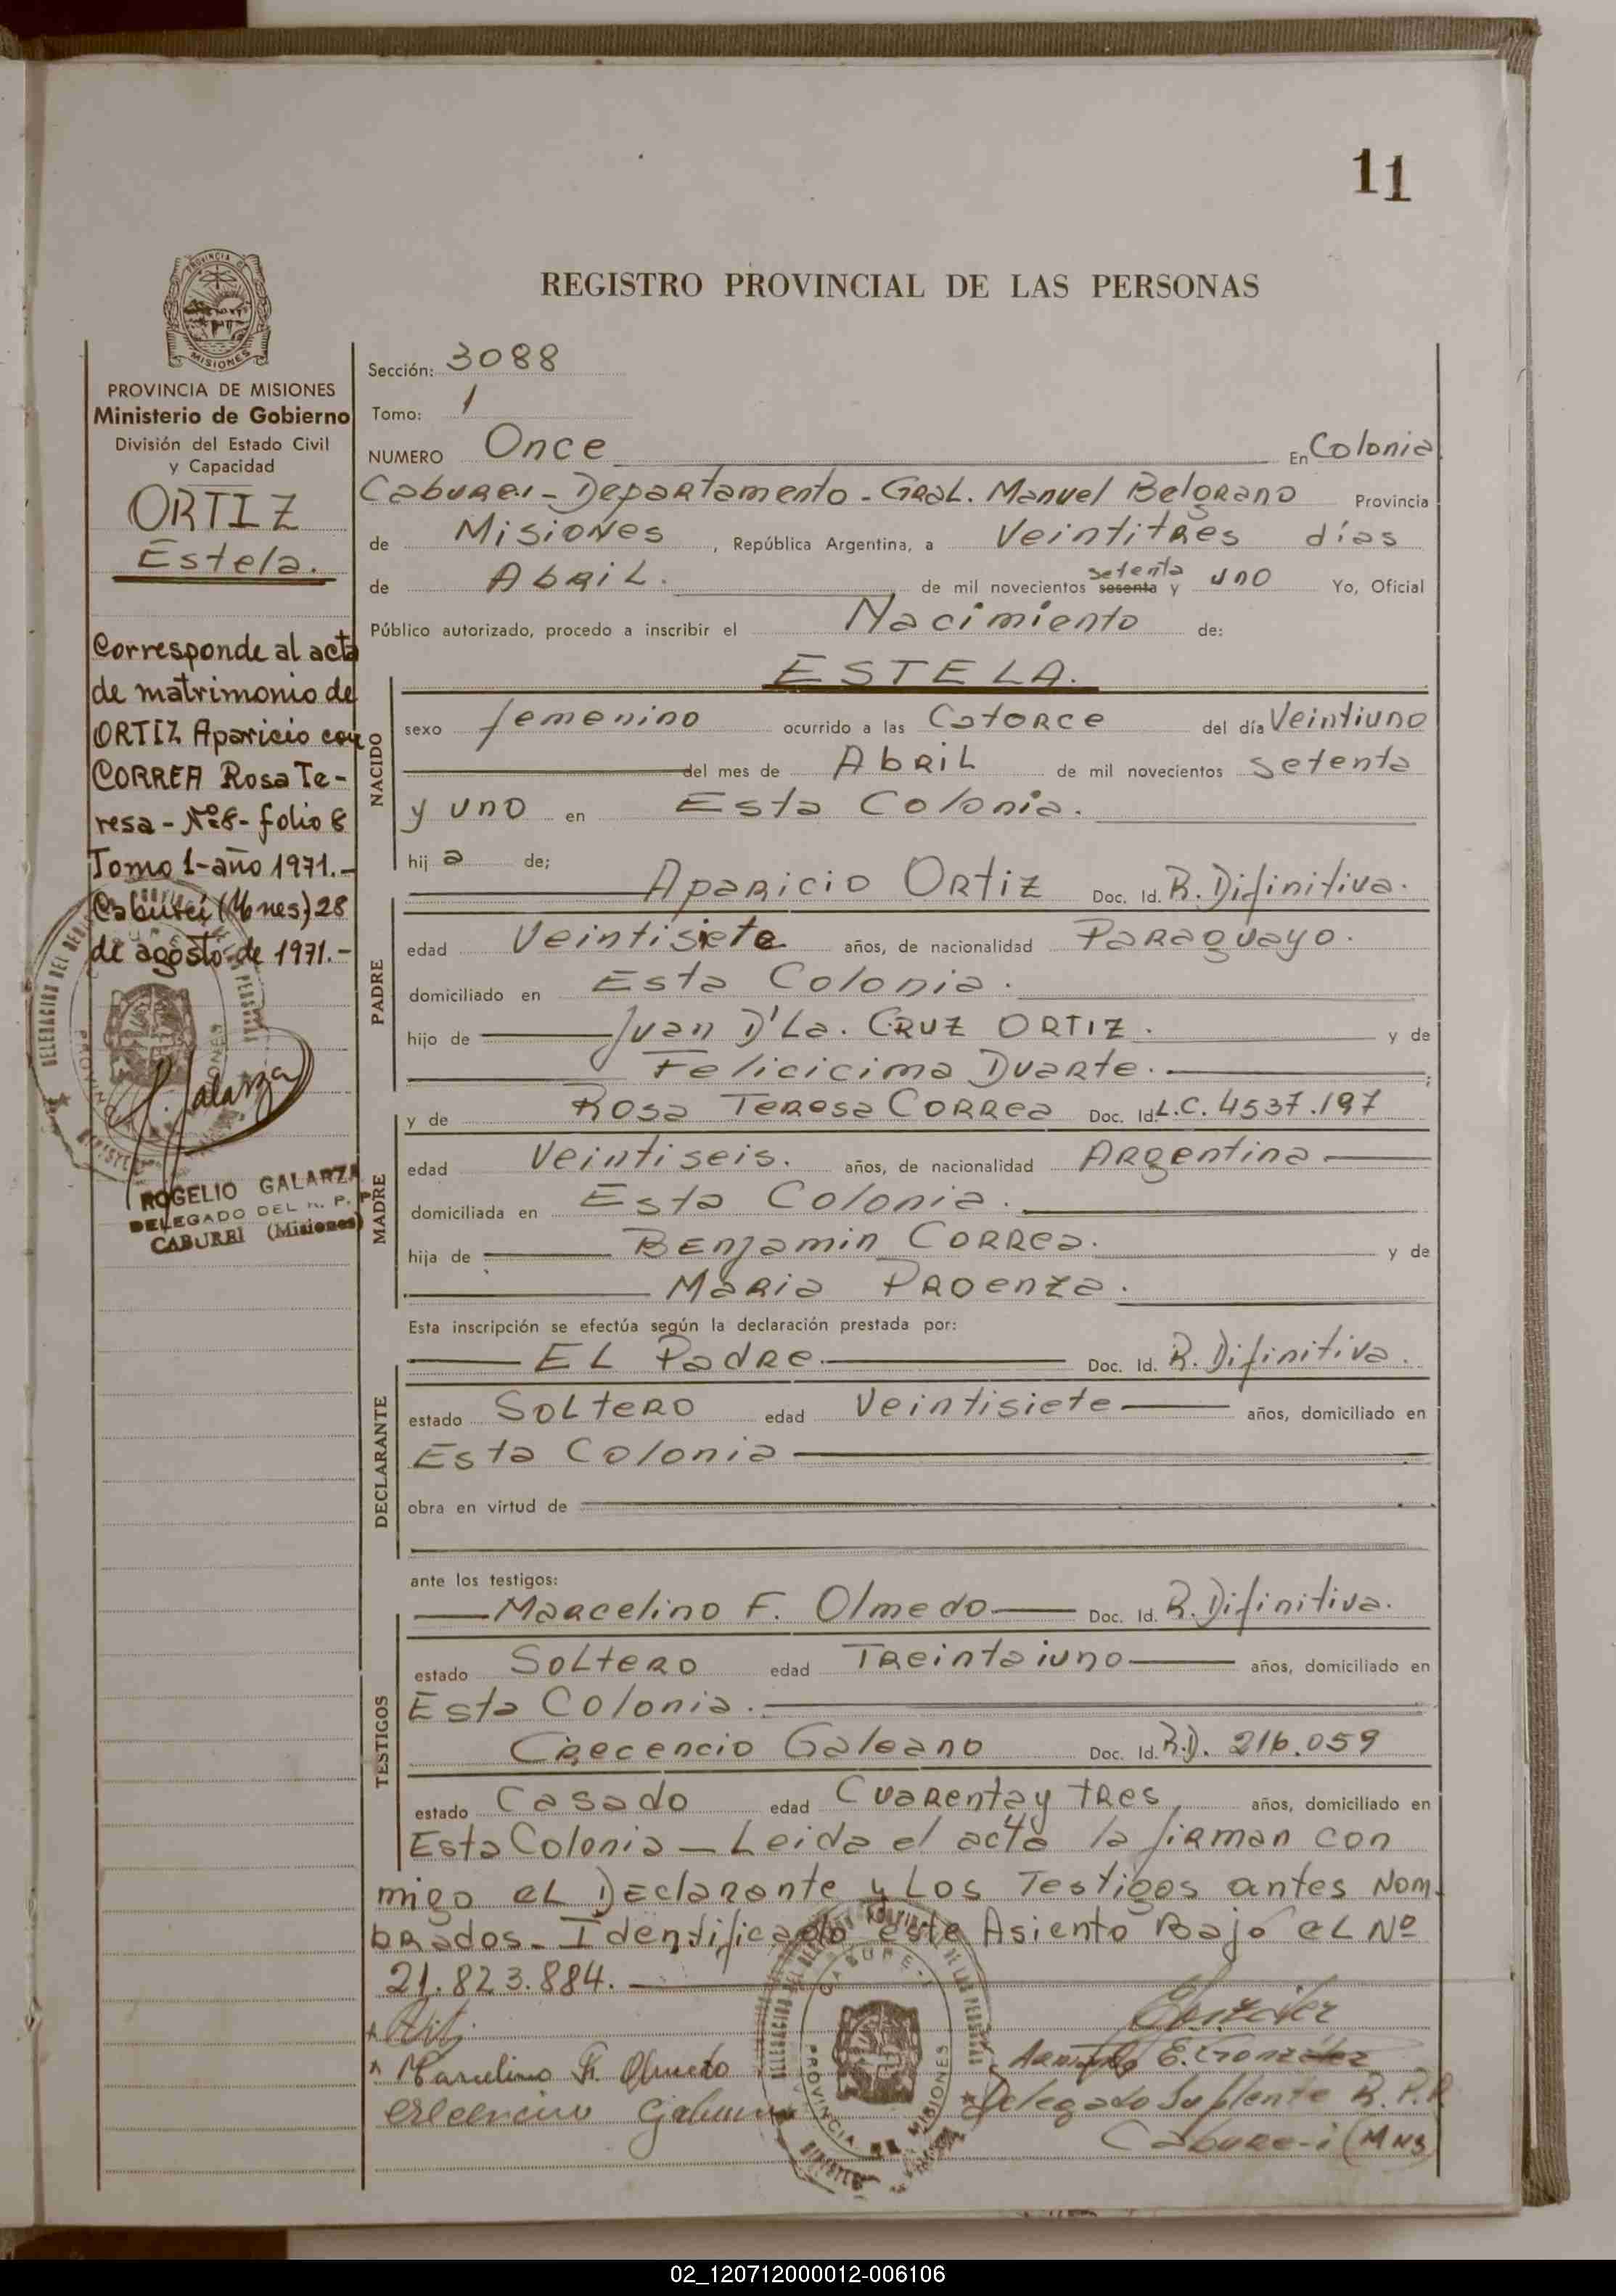 11
REGISTRO PROVINCIAL DE LAS PERSONAS
PROVINCIA DE MISIONES
Ministerio de Gobierno
División del Estado Civil
y Capacidad
ORTIZ
Estela.
Corresponde al acta
de matrimonio de
ORTIZ Aparicio con
CORREA Rosa Te-
resa - Nº 8 - folio 8
Tomo 1 - año 1971.-
Caburei (Mnes) 28
de agosto de 1971.-
ROGELIO GALARZA
DELEGADO DEL R. P. P.
CABUREI (Misiones)
Sección: 3088
Tomo: 1
NUMERO Once En Colonia
Caburei - Departamento - Gral. Manuel Belgrano Provincia
de Misiones, República Argentina, a Veintitres días
de Abril. de mil novecientos sesenta setenta y uno Yo, Oficial
Público autorizado, procedo a inscribir el Nacimiento de:
ESTELA.
NACIDO
sexo femenino ocurrido a las Catorce del día Veintiuno
del mes de Abril de mil novecientos setenta
y uno en Esta Colonia.
hij a de;
Aparicio Ortiz Doc. Id. R. Difinitiva.
PADRE
edad Veintisiete años, de nacionalidad Paraguayo.
domiciliado en Esta Colonia.
hijo de Juan D'La. Cruz ORTIZ. y de
Felicicima Duarte. ;
y de Rosa Teresa Correa Doc. Id. L.C. 4537.197
MADRE
edad Veintiseis. años, de nacionalidad Argentina
domiciliada en Esta Colonia.
hija de Benjamin Correa. y de
Maria Proenza.
Esta inscripción se efectúa según la declaración prestada por:
EL Padre Doc. Id. R. Difinitiva.
DECLARANTE
estado Soltero edad Veintisiete años, domiciliado en
Esta Colonia
obra en virtud de
ante los testigos:
Marcelino F. Olmedo Doc. Id. R. Difinitiva.
TESTIGOS
estado Soltero edad Treintaiuno años, domiciliado en
Esta Colonia.
Crecencio Galeano Doc. Id. R.D. 216.059
estado Casado edad Cuarenta y tres, años, domiciliado en
Esta Colonia - Leida el acta la firman con
migo el Declarante y Los Testigos antes Nom-
brados - Identificado este Asiento Bajo el Nº
21.823.884.
Marcelino F. Olmedo
E. Gonzalez
Delegado Suplente R.P.P.
Cabure-i (Mns
02_120712000012-006106